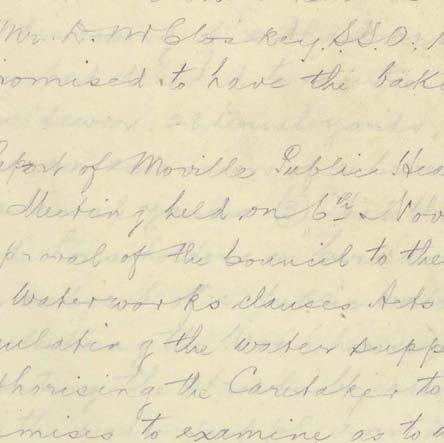 Mr D. McCloskey S.S.O.
romised to have the bak
eport of Moville Public Hea
Meeting held on 6th Nov
proval of the Council to the
Waterworks Clauses Acts
ulating the water supp
thorising the Caretaker to
mises to examine as to